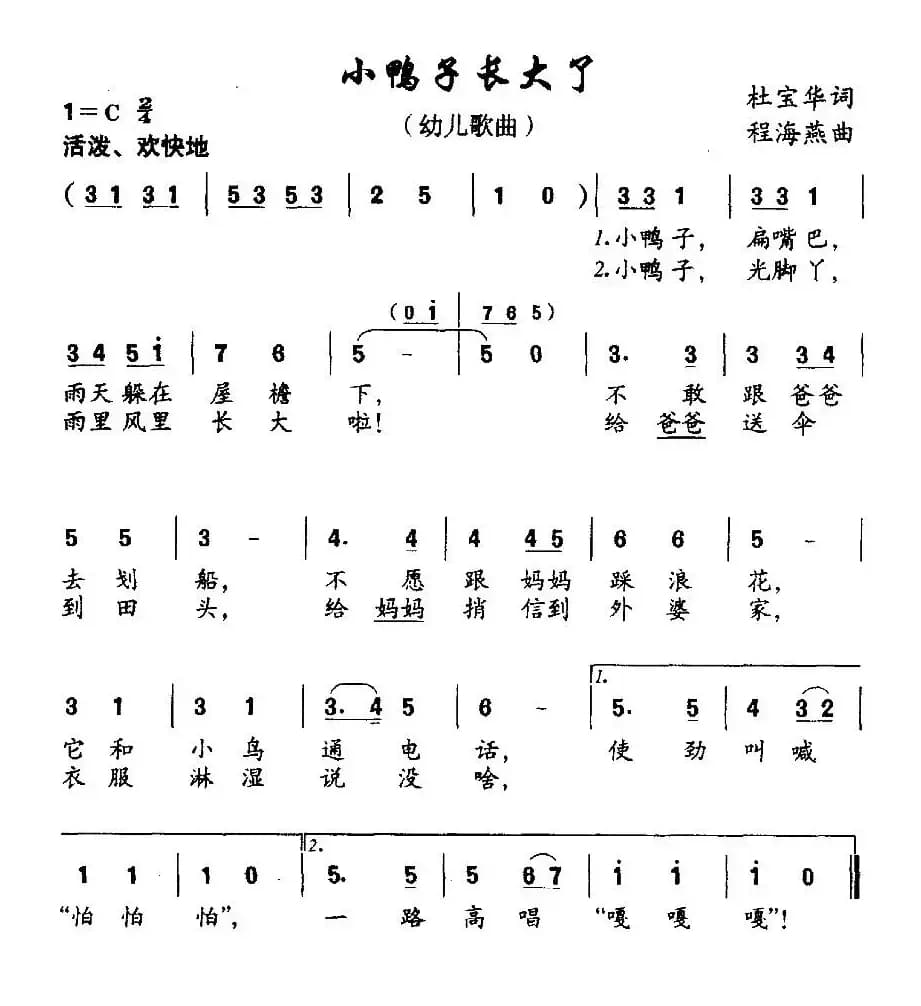 小鸭子长大了
（幼儿歌曲）
1=C 2/4
活泼、欢快地
杜宝华词
程海燕曲
(3 1 3 1 | 5 3 5 3 | 2 5 | 1 0 )| 3 3 1 | 3 3 1 |
1.小鸭子， 扁嘴巴，
2.小鸭子， 光脚丫，
(0 i | 7 6 5)
3 4 5 i | 7 6 | 5 - | 5 0 | 3. 3 | 3 3 4 |
雨天躲在 屋檐 下， 不敢跟爸爸
雨里风里 长大 啦！ 给爸爸送伞
5 5 | 3 - | 4. 4 | 4 4 5 | 6 6 | 5 - |
去划船， 不愿跟妈妈踩浪花，
到田头， 给妈妈捎信到外婆家，
1.
3 1 | 3 1 | 3. 4 5 | 6 - | 5. 5 | 4 3 2 |
它和小鸟通电话， 使劲叫喊
衣服淋湿说没啥，
2.
1 1 | 1 0 | 5. 5 | 5 6 7 | i i | i 0 ‖
“怕怕怕”， 一路高唱“嘎嘎嘎”！